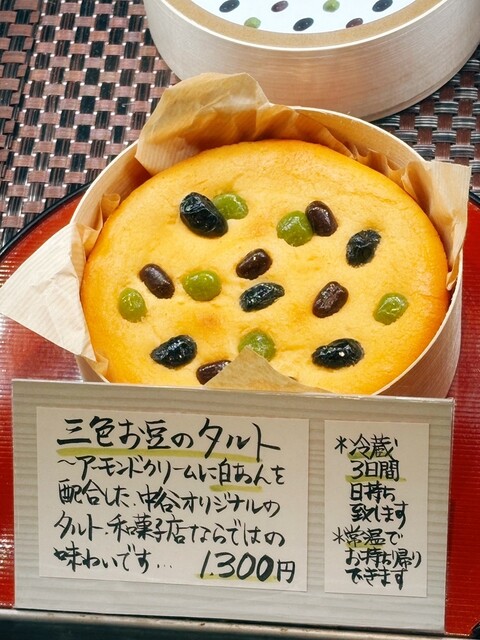 三色お豆のタルト
～アーモンドクリームに白あんを
配合した、中谷オリジナルの
タルト。和菓子店ならではの
味わいです… 1.300円
*冷蔵
3日間
日持ち
致します
*常温で
お持ち帰り
できます